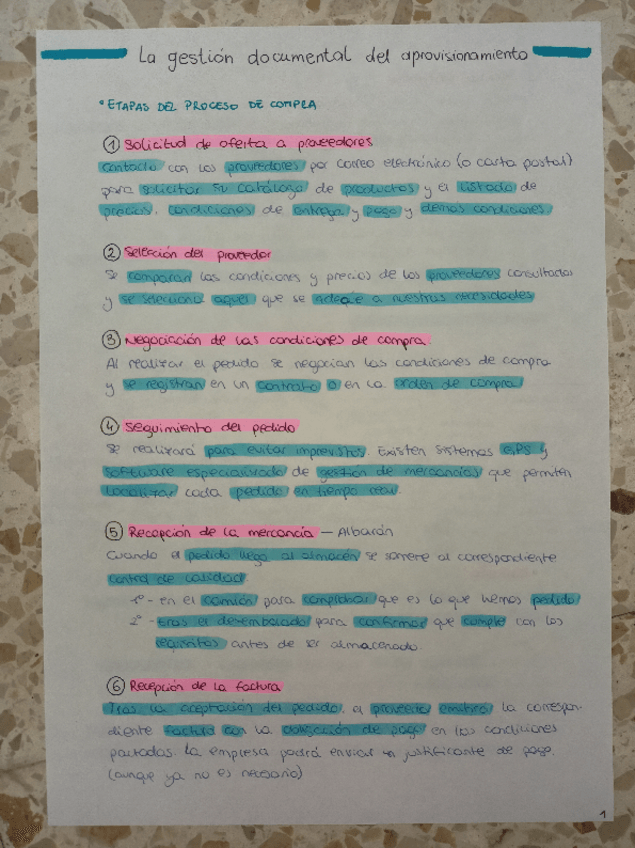 La gestión documental del aprovisionamiento
* ETAPAS DEL PROCESO DE COMPRA
① Solicitud de oferta a proveedores
Contacto con los proveedores por correo electrónico (o carta postal)
para solicitar su catálogo de productos y el listado de
precios, condiciones de entrega y pago y demás condiciones.
② Selección del proveedor
Se comparan las condiciones y precios de los proveedores consultados
y se selecciona aquel que se adeqúe a nuestras necesidades
③ Negociación de las condiciones de compra.
Al realizar el pedido se negocian las condiciones de compra
y se registran en un contrato o en la orden de compra.
④ Seguimiento del pedido
Se realizará para evitar imprevistos. Existen sistemas GPS y
software especializado de gestión de mercancías que permiten
localizar cada pedido en tiempo real.
⑤ Recepción de la mercancía — Albarán
Cuando el pedido llega al almacén se somete al correspondiente
control de calidad.
1º - en el camión para comprobar que es lo que hemos pedido
2º - tras el desembalado para confirmar que cumple con los
requisitos antes de ser almacenado.
⑥ Recepción de la factura
Tras la aceptación del pedido, el proveedor emitirá la correspon-
diente factura con la obligación de pago en las condiciones
pactadas. La empresa podrá enviar un justificante de pago.
(aunque ya no es necesario)
1